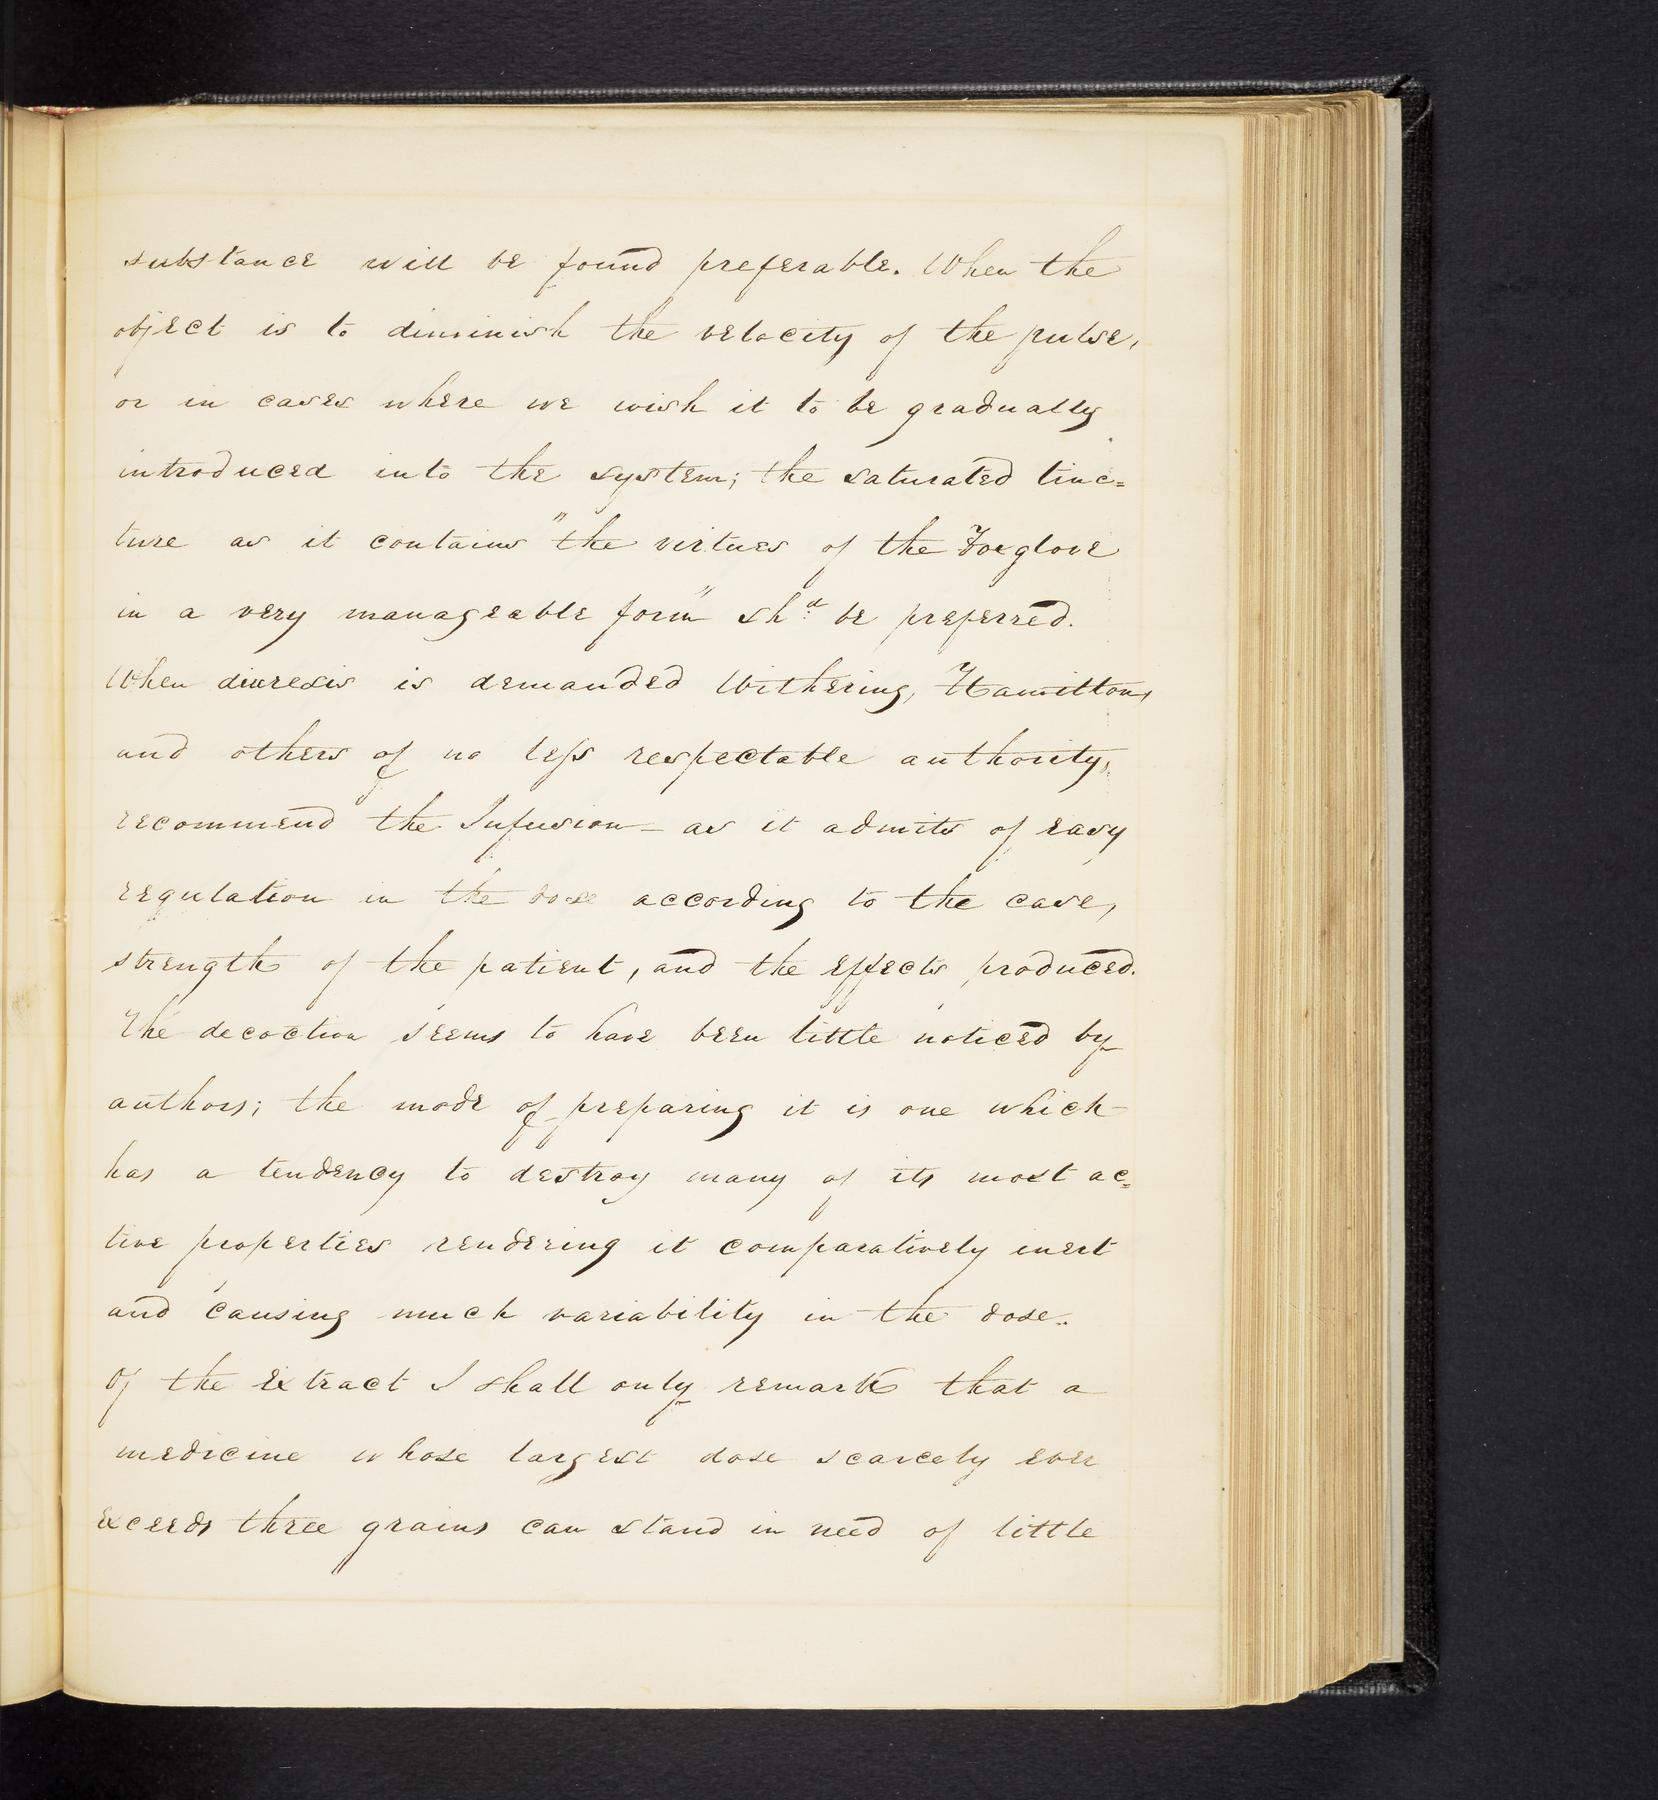 substance will be found preferable. When the
object is to diminish the velocity of the pulse,
or in cases where we wish it to be gradually
introduced into the system; the saturated tinc=
ture as it contains "the virtues of the Foxglove
in a very manageable form" shd be preferred.
When diuresis is demanded Withering, Hamilton,
and others of no less respectable authority,
recommend the Infusion - as it admits of easy
regulation in the dose according to the case,
strength of the patient, and the effects produced.
The decoction seems to have been little noticed by
authors; the mode of preparing it is one which
has a tendency to destroy many of its most ac=
tive properties rendering it comparatively inert
and causing much variability in the dose.
Of the Extract I shall only remark that a
medicine whose largest dose scarcely ever
exceeds three grains can stand in need of little